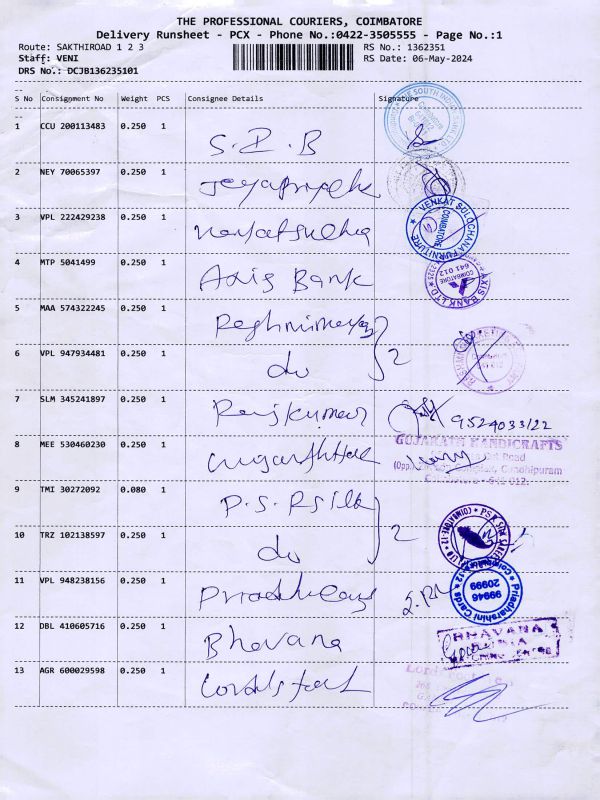 THE PROFESSIONAL COURIERS, COIMBATORE
Delivery Runsheet - PCX - Phone No.:0422-3505555 - Page No.:1
Route: SAKTHIROAD 1 2 3
RS No.: 1362351
Staff: VENI
RS Date: 06-May-2024
DRS No.: DCJB136235101
S No Consignment No Weight PCS Consignee Details Signature
1 CCU 200113483 0.250 1 S.I.B
2 NEY 70065397 0.250 1
3 VPL 222429238 0.250 1
VENKAT SULOCHANA FURNITURE
COIMBATORE
4 MTP 5041499 0.250 1 Axis Bank
AXIS BANK LTD
COIMBATORE
641 012
5 MAA 574322245 0.250 1
6 VPL 947934481 0.250 1 do 2
7 SLM 345241897 0.250 1 Rajkumar 9524033122
8 MEE 530460230 0.250 1
GUJARATH HANDICRAFTS
Complex, Gandhipuram
9 TMI 30272092 0.080 1 P.S.R silk
10 TRZ 102138597 0.250 1 do 2
11 VPL 948238156 0.250 1
Priadharshini Cards
99946
20999
12 DBL 410605716 0.250 1 Bhavana
BHAVANA
13 AGR 600029598 0.250 1